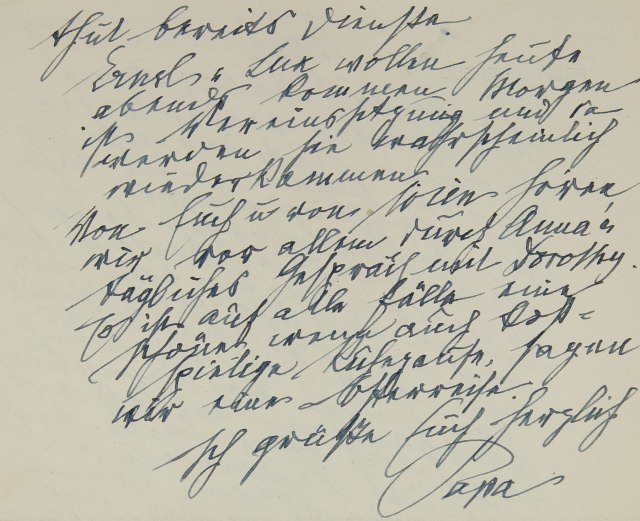 thut bereits Dienste
Ernst u Lux wollen heute
abends kommen Morgen
ist Vereinssitzung und da
werden sie wahrscheinlich
wiederkommen
Von Euch u von hören
wir vor allem durch Anna's
tägliches Gespräch mit Dorothy.
Es ist auf alle Fälle eine
schöne wenn auch kost=
spielige Ruhepause, sagen
wir eine Osterreise.
Ich grüße Euch herzlich
Papa